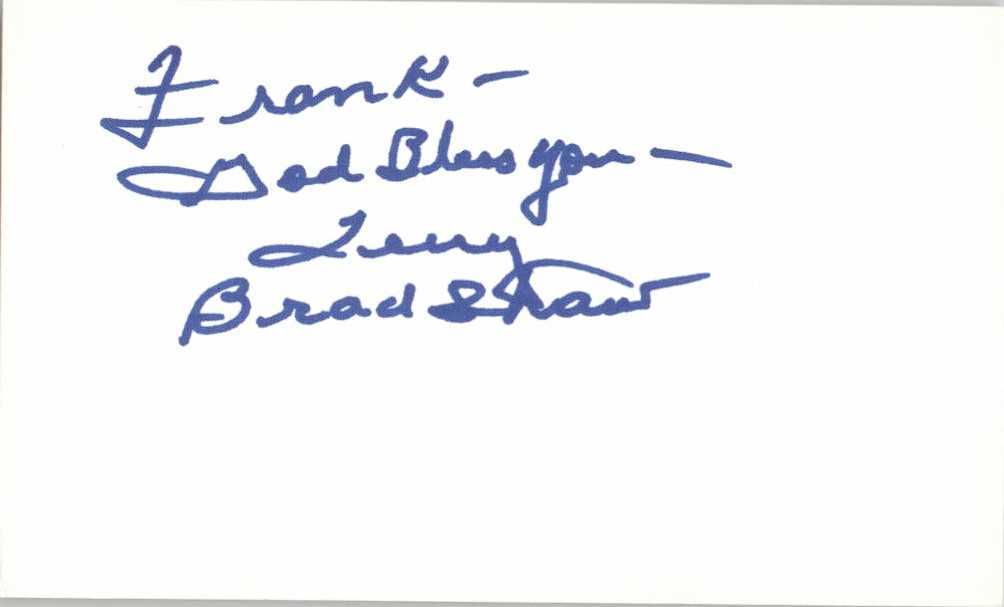 Frank -
God Bless you -
Terry
Bradshaw